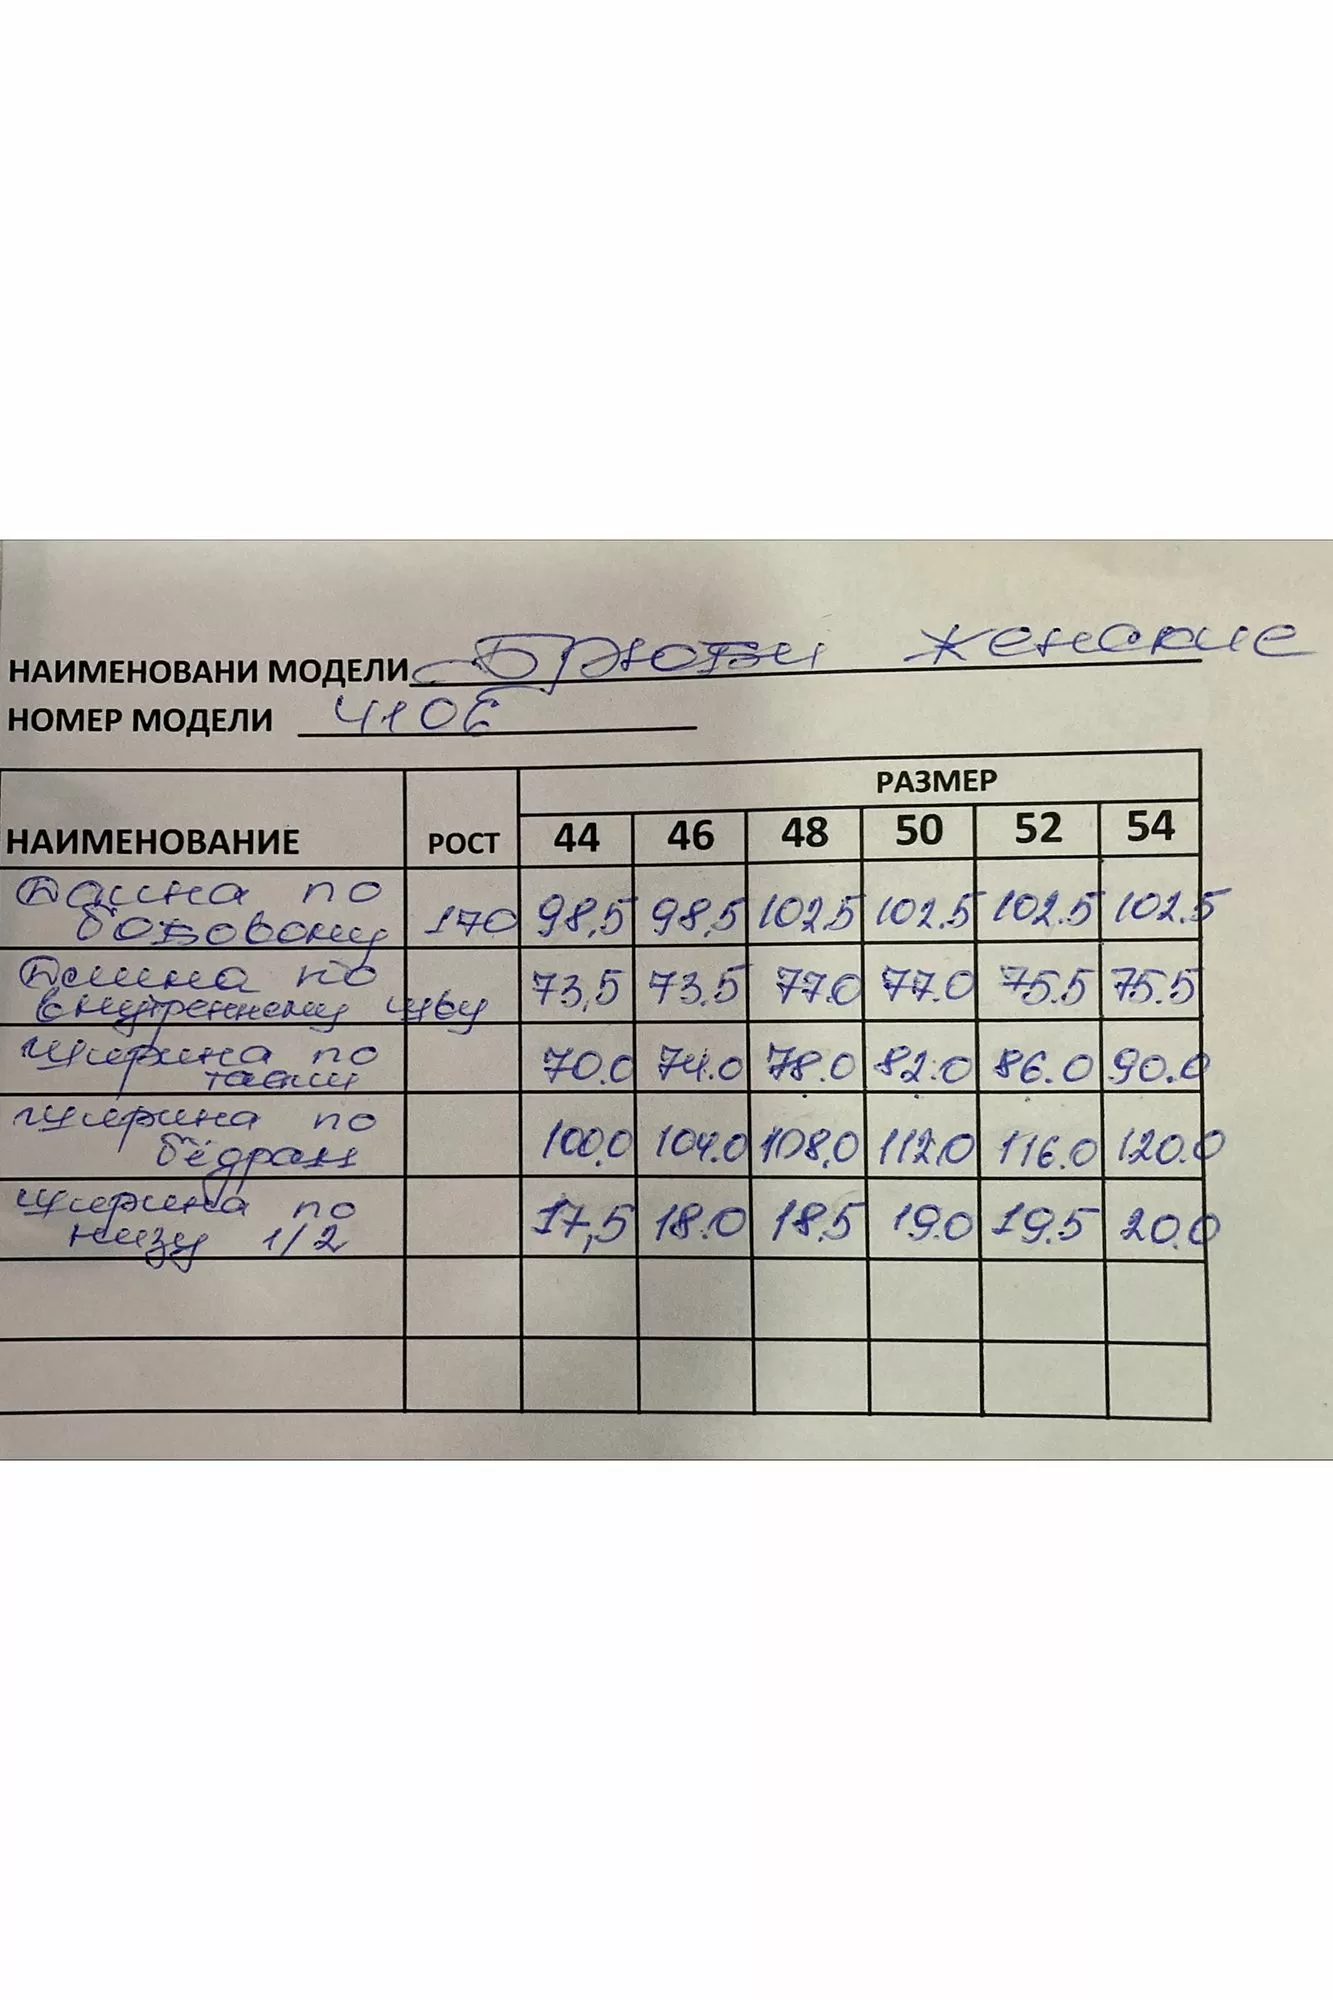 НАИМЕНОВАНИ МОДЕЛИ Брюки женские
НОМЕР МОДЕЛИ 410Е
РАЗМЕР
НАИМЕНОВАНИЕ РОСТ 44 46 48 50 52 54
Длина по
боковому 170 98,5 98,5 102.5 102.5 102.5 102.5
Длина по
внутреннему шву 73,5 73.5 77.0 77.0 75.5 75.5
Ширина по
талии 70.0 74.0 78.0 82.0 86.0 90.0
Ширина по
бёдрам 100,0 104.0 108,0 112.0 116.0 120.0
Ширина по
низу 1/2 17,5 18.0 18.5 19.0 19.5 20.0